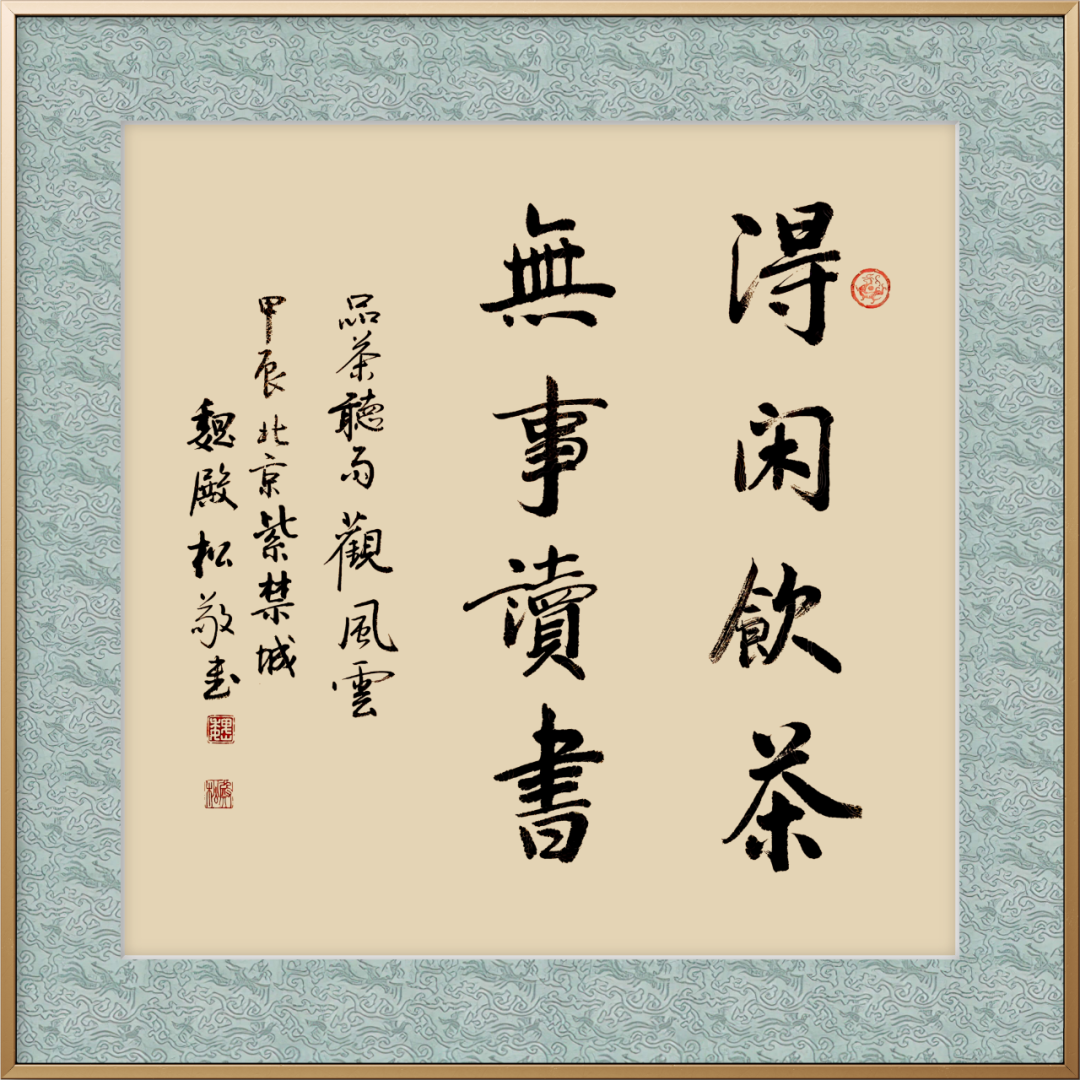 得闲飲茶
無事讀書
品茶聽雨觀風雲
甲辰北京紫禁城
魏殿松敬书
魏